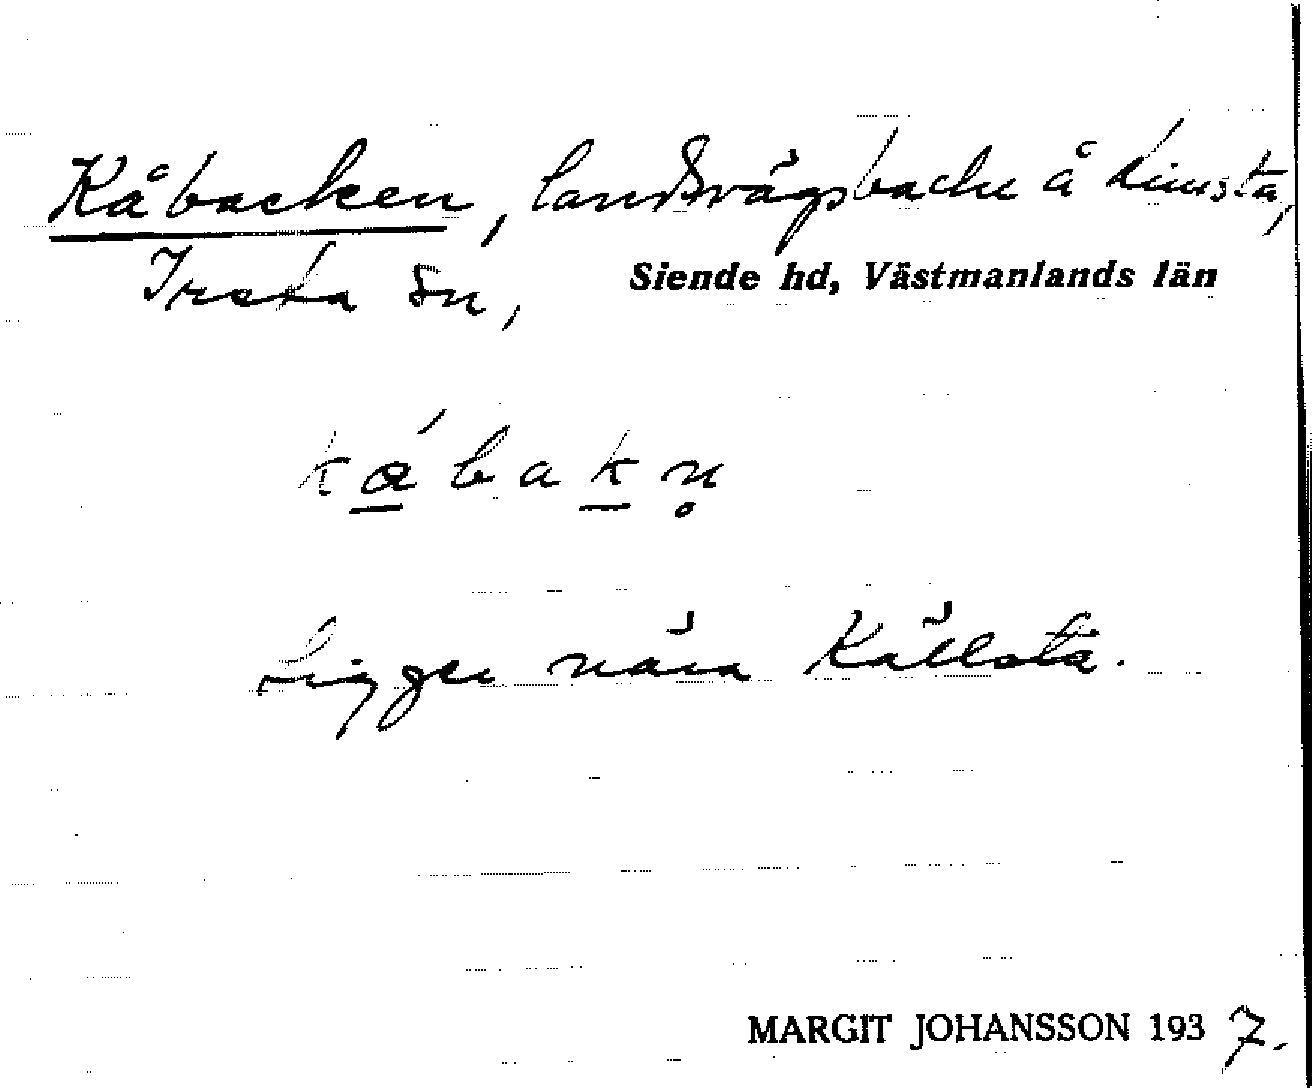 Kåbacken, landsvägsbacke å Limsta,
Irsta sn, Siende hd, Västmanlands län
kåbakn̥
Ligger nära Källsta.
MARGIT JOHANSSON 1937.